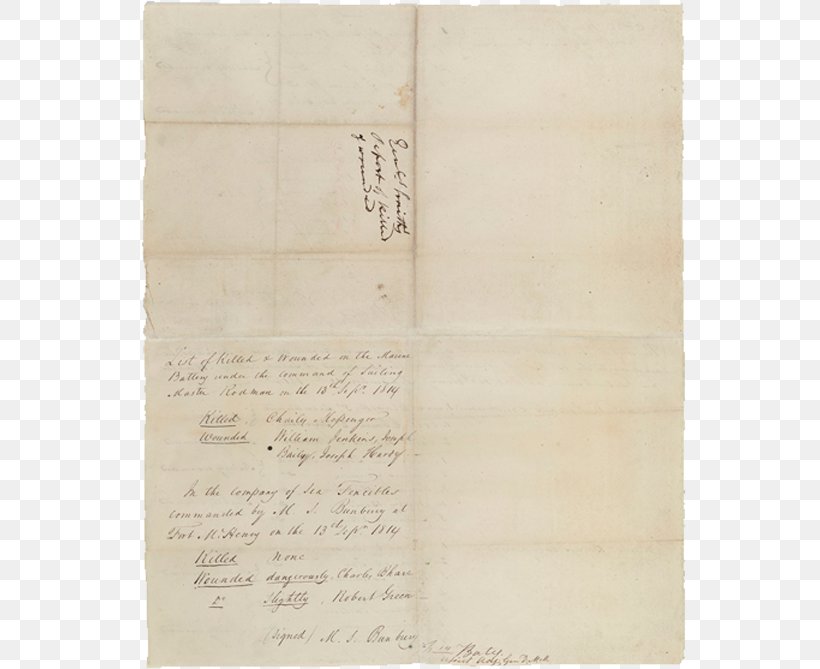 Genl Smith's
Report of Killed
& wounded
List of Killed & Wounded on the Marine
Battery under the command of Sailing
Master Rodman on the 13th Sepr. 1814
Killed. Charles Messenger
Wounded William Jenkins, Joseph
Bailey, Joseph Hardy –
In the company of Sea Fencibles
commanded by M. S. Bunbury at
Fort McHenry on the 13th Sepr. 1814
Killed None
Wounded dangerously. Charles
Do slightly. Robert Green –
(signed) M. S. Bunbury